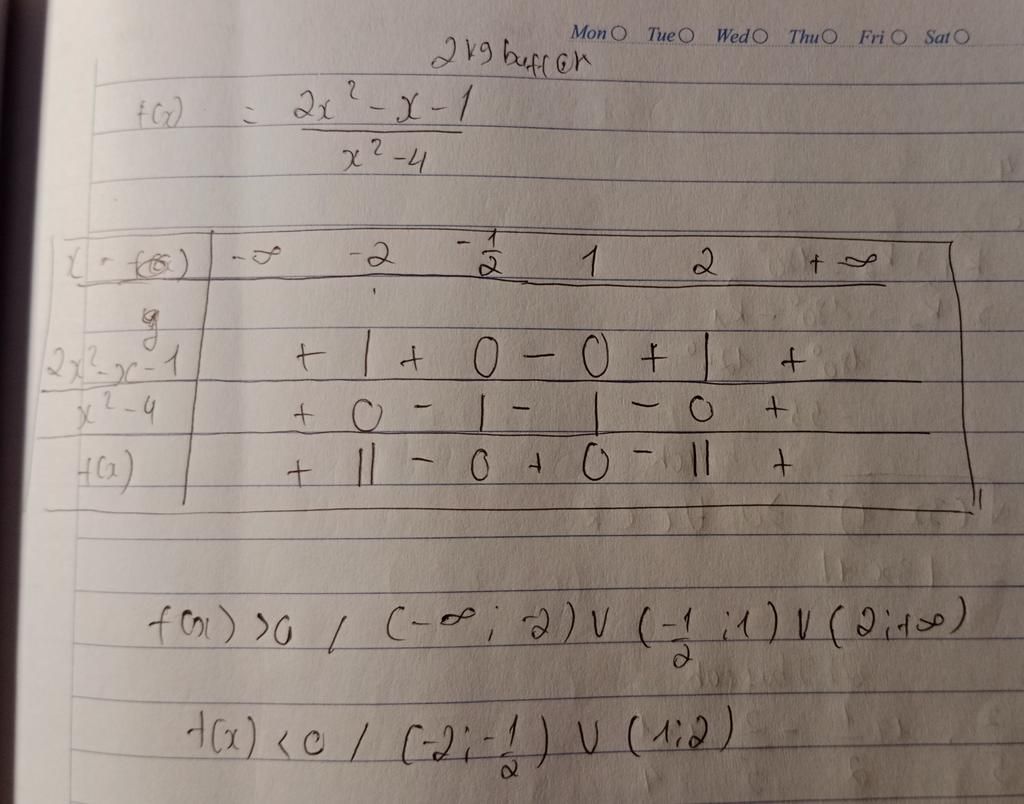 Mon Tue Wed Thu Fri Sat
f(x) = (2x² - x - 1) / (x² - 4)
x -∞ -2 -1/2 1 2 +∞
2x² - x - 1 + | + 0 - 0 + | +
x² - 4 + 0 - | - | - 0 +
f(x) + || - 0 + 0 - || +
f(x) > 0 / (-∞; -2) ∪ (-1/2; 1) ∪ (2; +∞)
f(x) < 0 / (-2; -1/2) ∪ (1; 2)